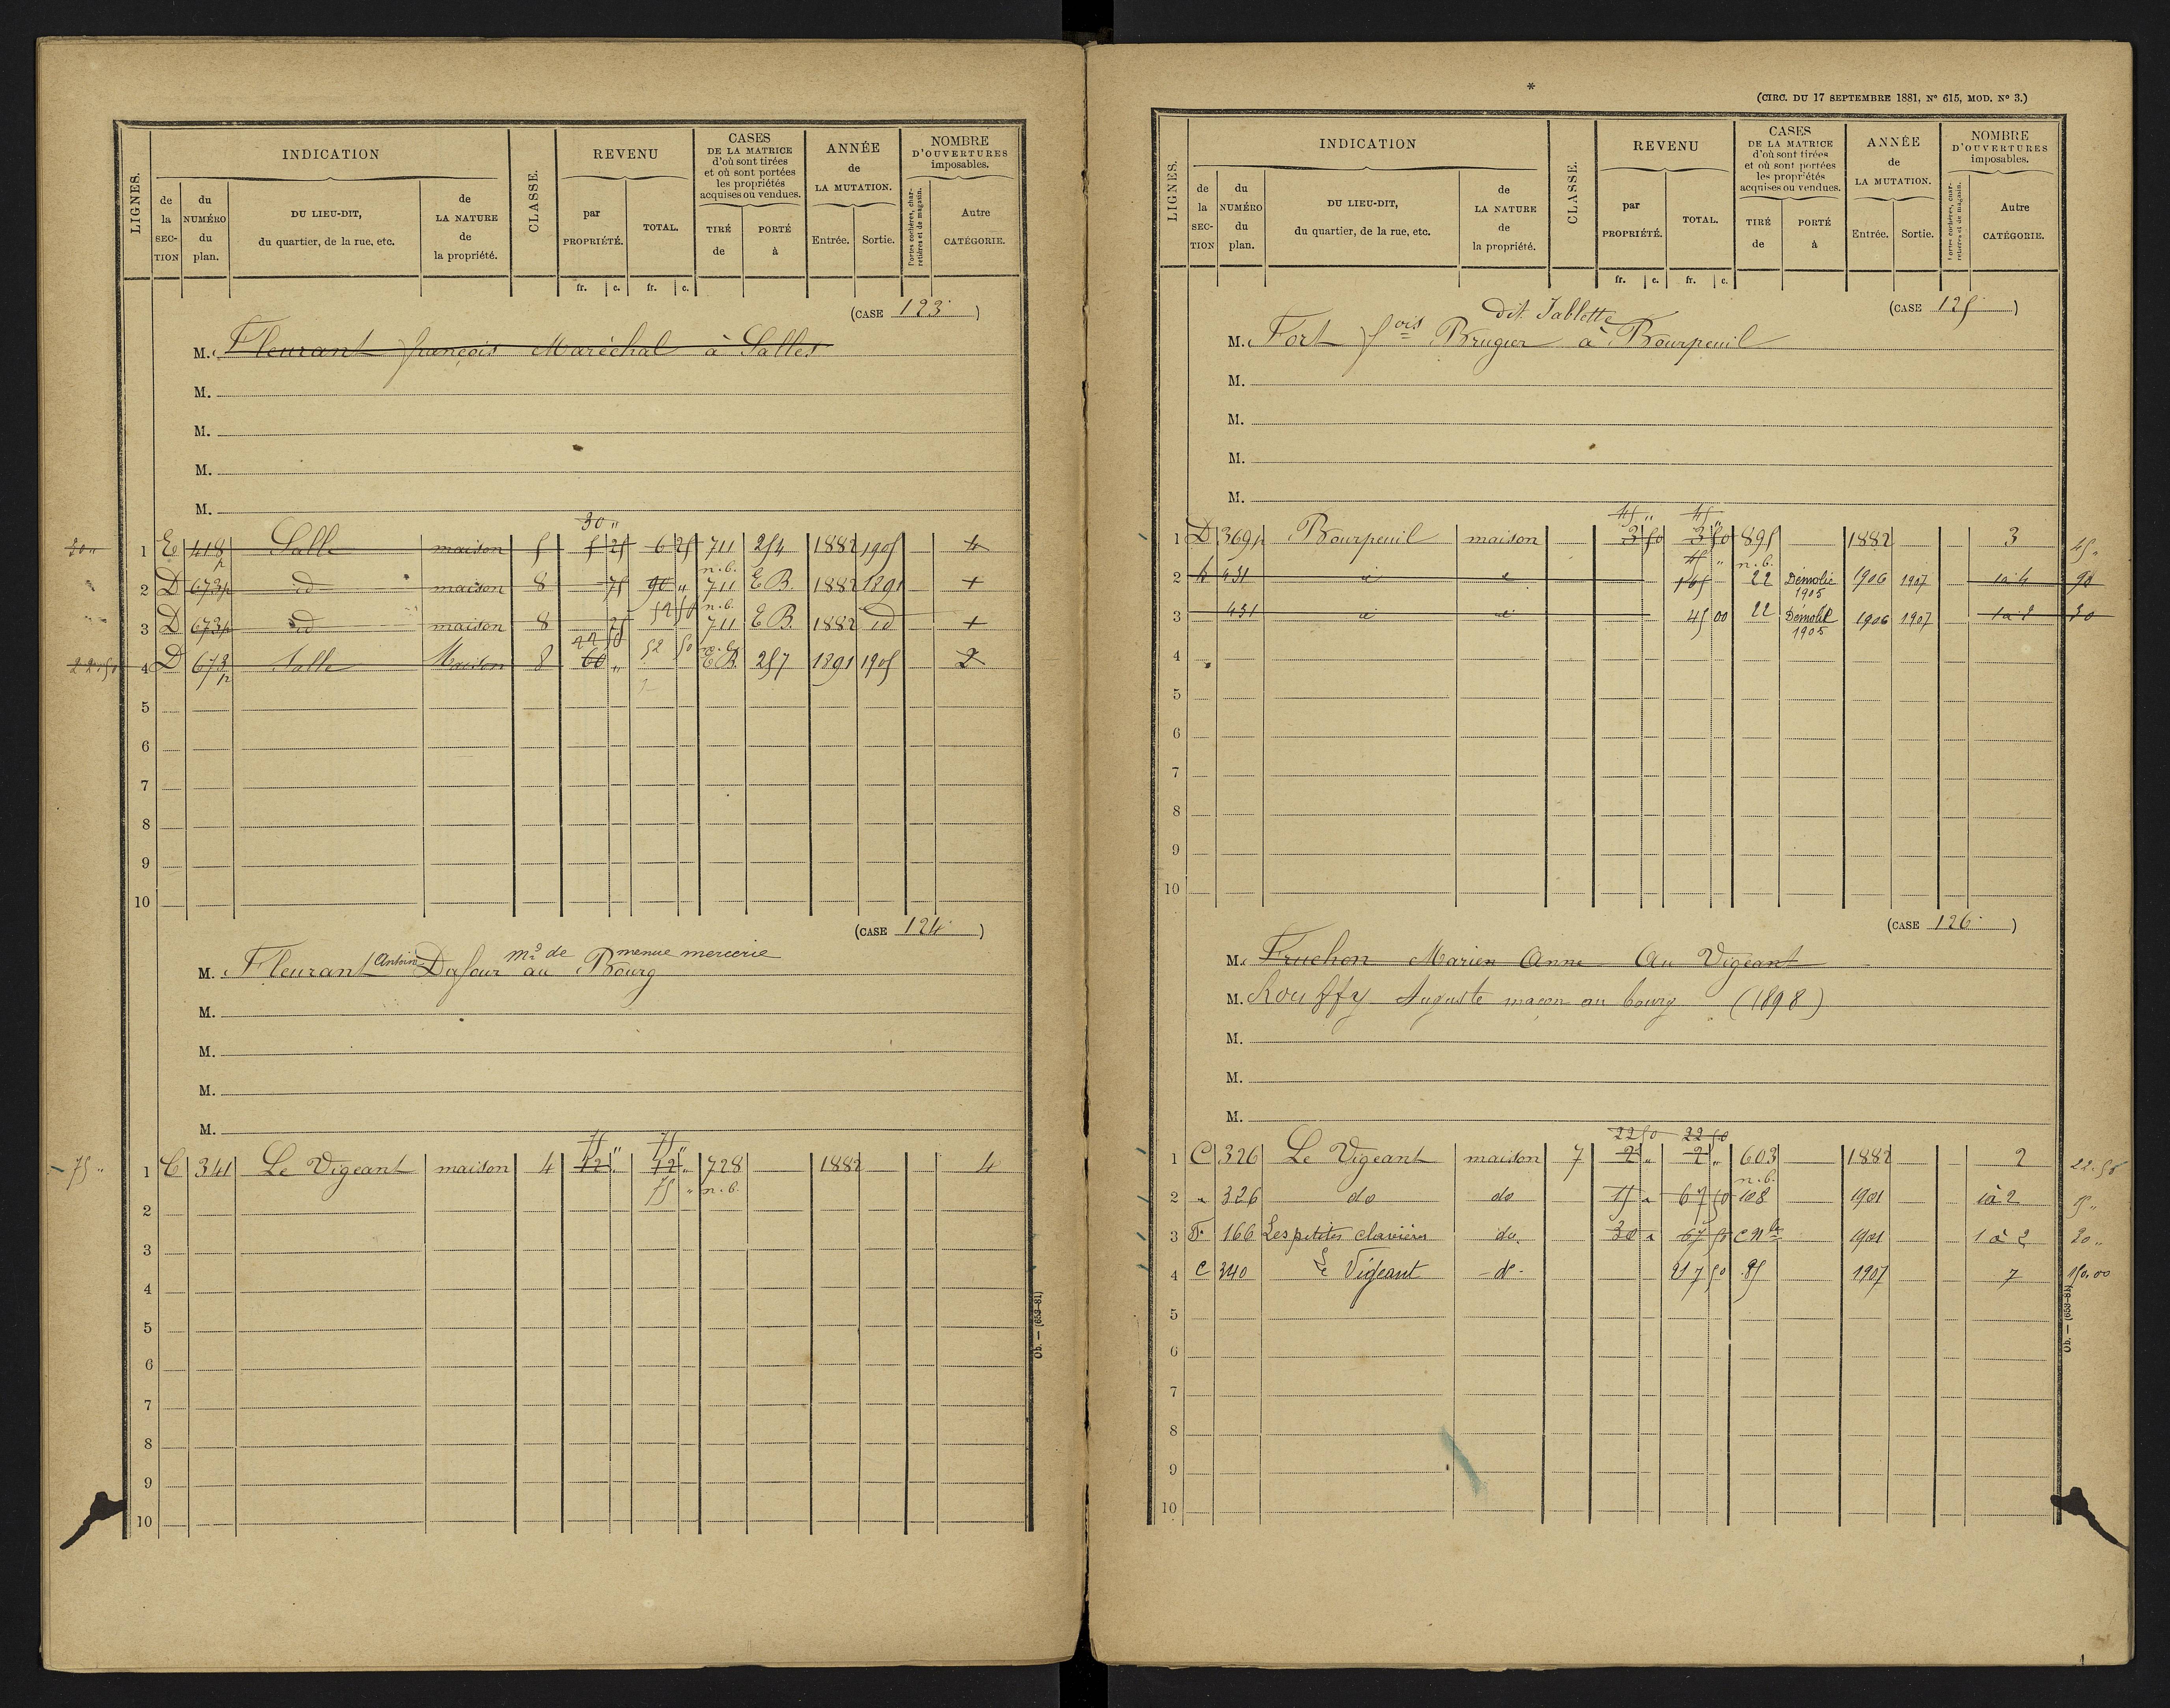 LIGNES.
INDICATION
de la SECTION
du NUMÉRO du plan.
DU LIEU-DIT, du quartier, de la rue, etc.
de LA NATURE de la propriété.
CLASSE.
REVENU
par PROPRIÉTÉ.
TOTAL.
CASES DE LA MATRICE d'où sont tirées et où sont portées les propriétés acquises ou vendues.
TIRÉ de
PORTÉ à
ANNÉE de LA MUTATION.
Entrée.
Sortie.
NOMBRE D'OUVERTURES imposables.
Portes cochères, charretières et de magasin.
Autre CATÉGORIE.
fr. c. fr. c.
(CASE 123)
M. Fleurant françois Maréchal à Salles
M.
M.
M.
M.
30 "
30 " 1 E 418 p Salle maison 5 5 25 6 25 711 254 1882 1905 4
n.b.
2 D 673p id maison 8 75 90 " 711 E B. 1882 1891 +
52 50 n.b.
3 D 673p id maison 8 75 711 E B. 1882 id +
22 50
22.50 4 D 673 p Salle Maison 8 60 " 52 50 E B. 257 1891 1905 2
5
6
7
8
9
10
(CASE 124)
Antoine md de menue mercerie
M. Fleurant Dufour au Bourg
M.
M.
M.
M.
75 " 75 "
75 " 1 C 341 Le Vigeant maison 4 12 " 12 " 728 1882 4
75 " n.b.
2
3
4
5
6
7
8
9
10
Ob. — (653-81)
*
(CIRC. DU 17 SEPTEMBRE 1881, N° 615, MOD. N° 3.)
LIGNES.
INDICATION
de la SECTION
du NUMÉRO du plan.
DU LIEU-DIT, du quartier, de la rue, etc.
de LA NATURE de la propriété.
CLASSE.
REVENU
par PROPRIÉTÉ.
TOTAL.
CASES DE LA MATRICE d'où sont tirées et où sont portées les propriétés acquises ou vendues.
TIRÉ de
PORTÉ à
ANNÉE de LA MUTATION.
Entrée.
Sortie.
NOMBRE D'OUVERTURES imposables.
Portes cochères, charretières et de magasin.
Autre CATÉGORIE.
fr. c. fr. c.
(CASE 125)
dit Jablette
M. Fort fois Brugier à Bourpeuil
M.
M.
M.
M.
45 " 45 "
1 D 369p Bourpeuil maison 3 50 3 50 895 1882 3 45 "
45 " n.b.
2 431 165 22 Démolie 1905 1906 1907 1 à 4 90
3 431 45 00 22 Démolie 1905 1906 1907 1 à 2 30
4
5
6
7
8
9
10
(CASE 126)
M. Fruchon Marien Anne Au Vigeant
M. Rouffy Auguste maçon au bourg (1898)
M.
M.
M.
22 50 22 50
1 C 326 Le Vigeant maison 7 2 " 2 " 603 1882 2 22.50
n.b.
2 " 326 do do 15 " 67 50 108 1901 1 à 2 15 "
3 F. 166 Les petites clavières do. 30 " 67 50 C Nle 1901 1 à 2 30 "
4 C 340 Le Vigeant - do - 217 50 85 1907 7 150.00
5
6
7
8
9
10
Ob. — (653-81)